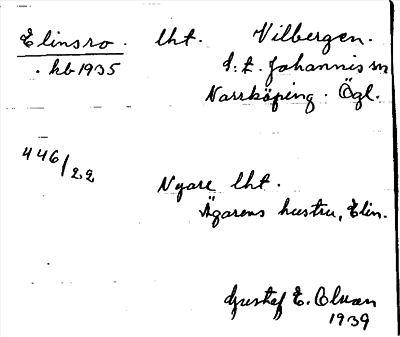 Elinsro. lht. Vilbergen.
. kb 1935 S:t Johannis sn
Norrköping. Ögl.
446/22
Nyare lht.
Ägarens hustru, Elin.
Gustaf E. Olsson
1939